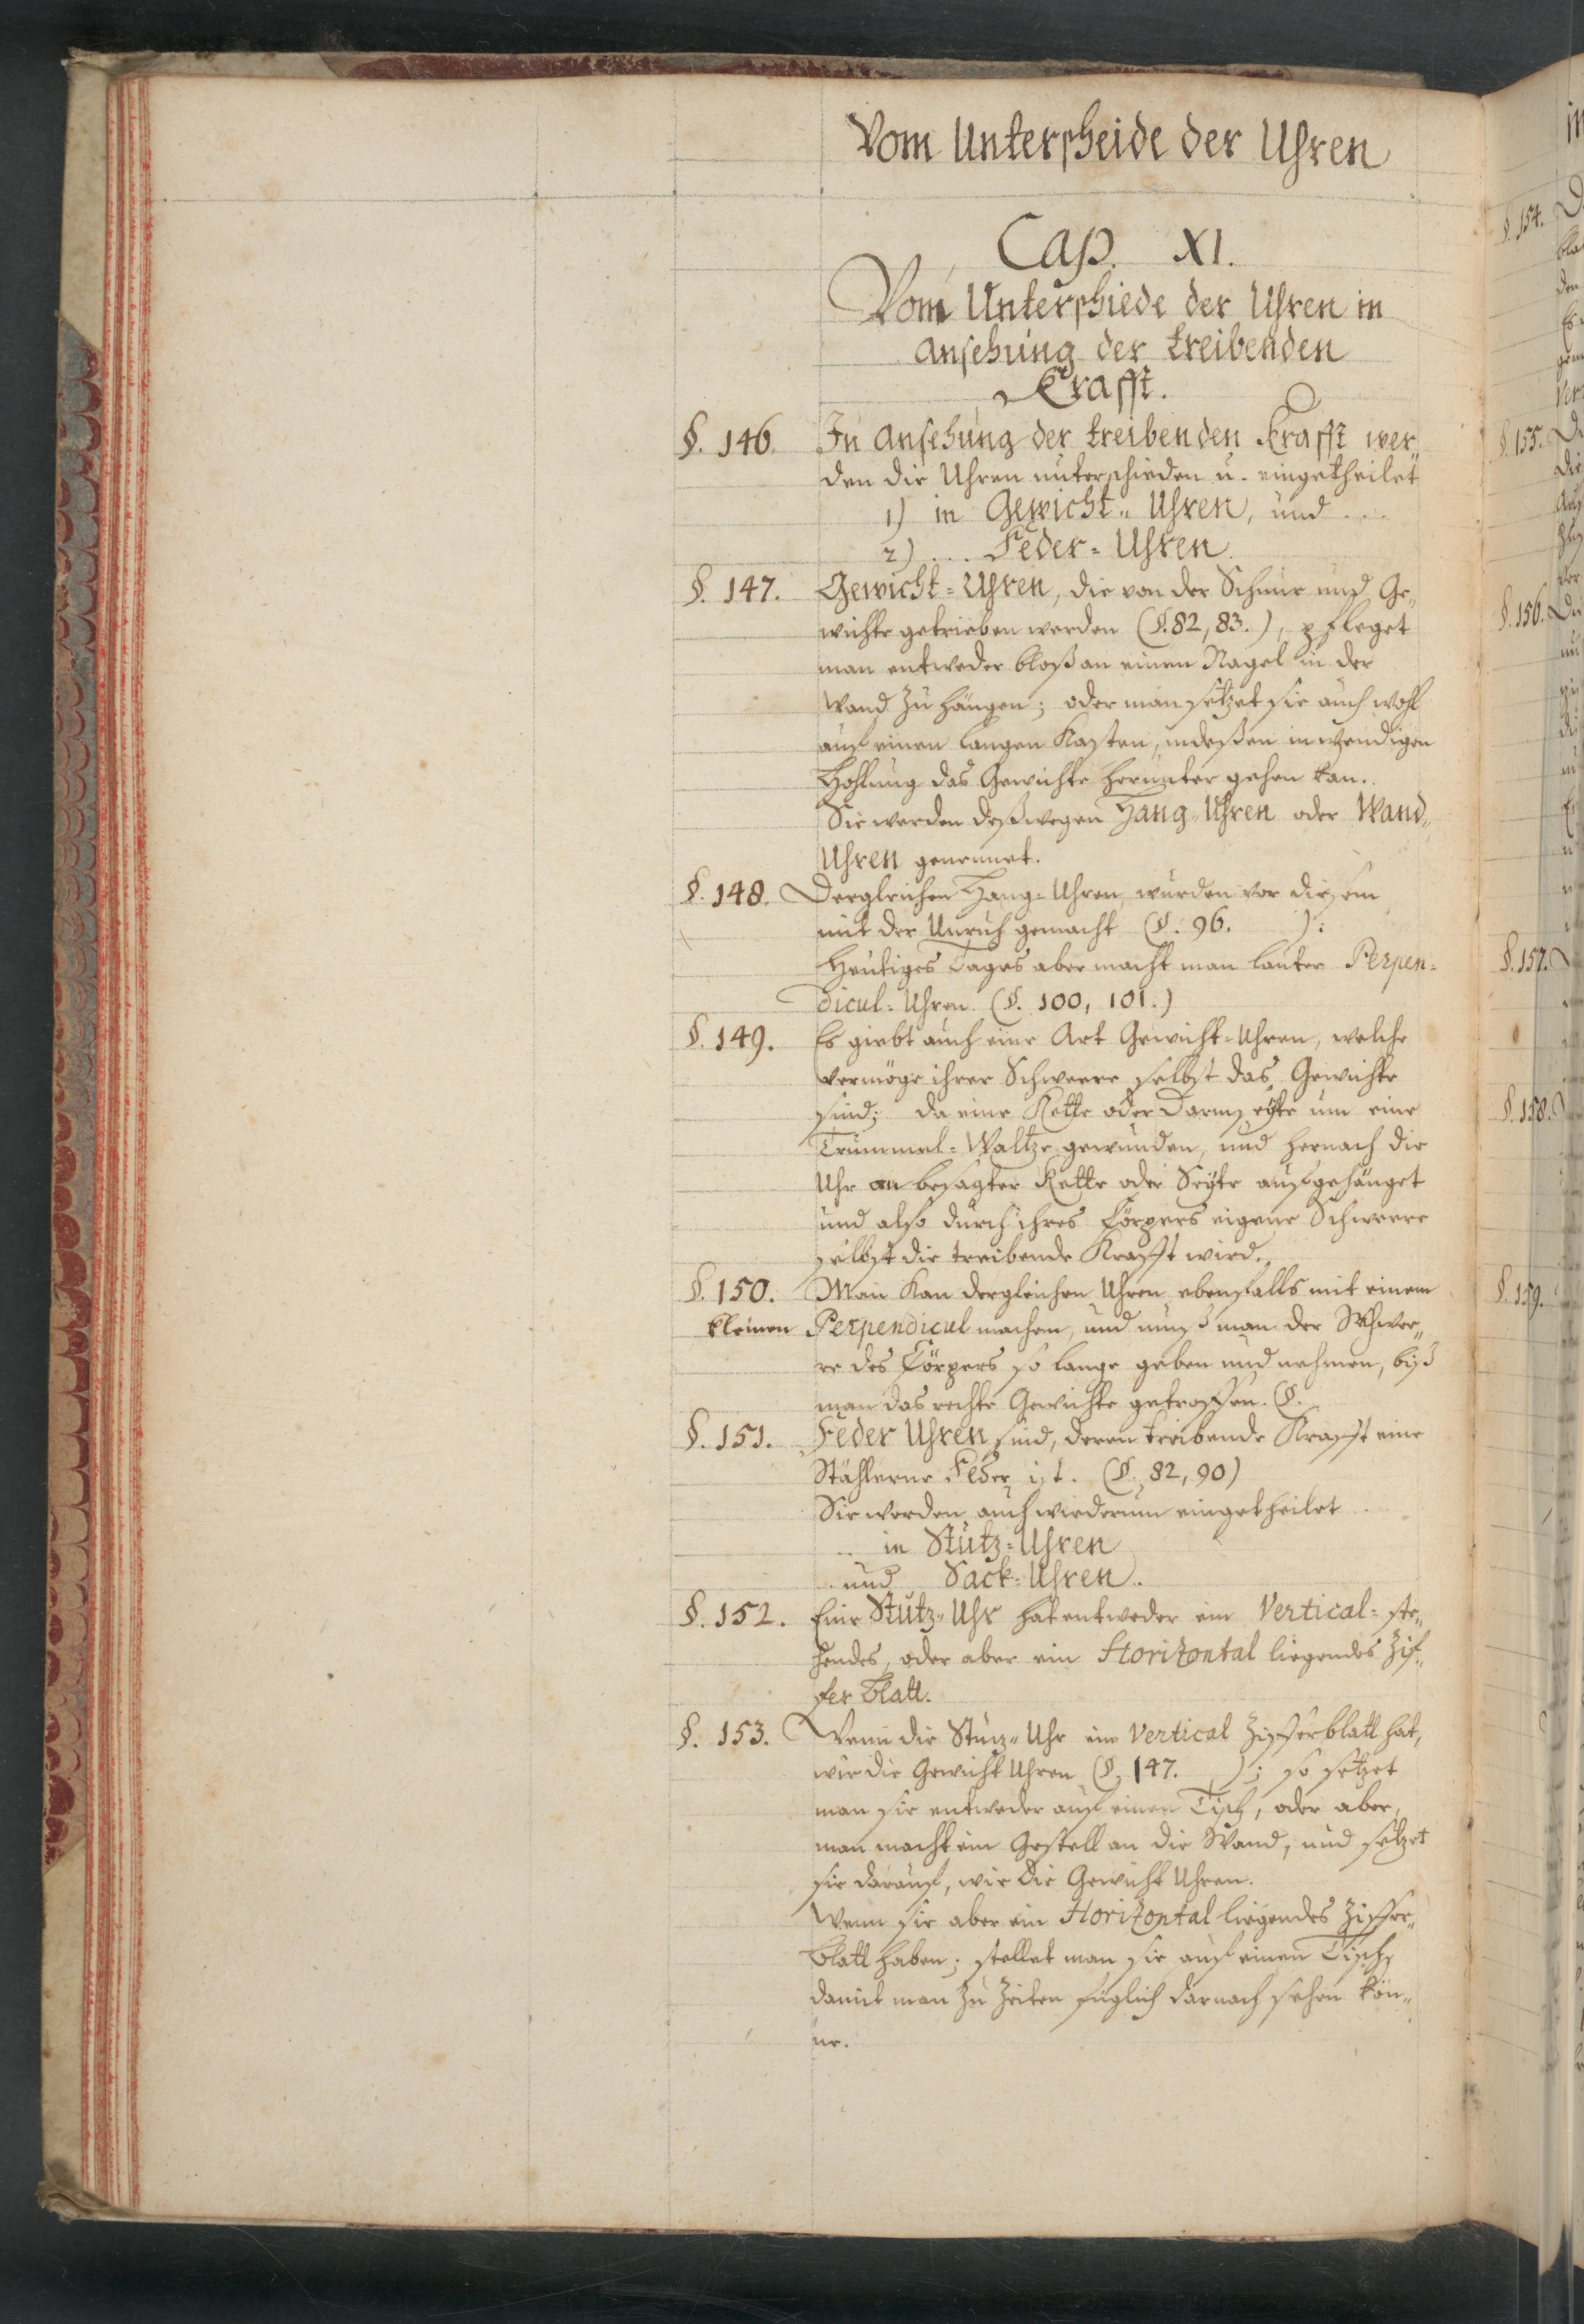 Vom Unterscheide der Uhren
Cap. XI.
Vom Unterschiede der Uhren in
Ansehung der treibenden
Krafft.
§. 146. In Ansehung der treibenden Krafft wer„
den die Uhren unterschieden u. eingetheilet
1) in Gewicht„ Uhren, und ...
2) ... Feder=Uhren.
§. 147. Gewicht=Uhren, die von der Schnur und Ge„
wichte getrieben werden (§. 82, 83.), pfleget
man entweder bloß an einen Nagel in der
Wand zu hängen; oder man setzet sie auch wohl
auf einen langen Kasten, in deßen inwendigen
Hohlung das Gewichte herunter gehen kan.
Sie werden deßwegen Hang=Uhren oder Wand„
Uhren genennet.
§. 148. Dergleichen Hang=Uhren, wurden vor diesem
mit der Unruh gemacht (§. 96. ):
Heutiges Tages aber macht man lauter Perpen=
dicul=Uhren. (§. 100, 101.)
§. 149. Es giebt auch eine Art Gewicht=Uhren, welche
vermöge ihrer Schweere selbst das Gewichte
sind; da eine Kette oder Darmseyte um eine
Trummel=Waltze gewunden, und hernach die
Uhr an besagter Kette oder Seyte aufgehänget
und also durch ihres Cörpers eigene Schweere
selbst die treibende Krafft wird.
§. 150. Man kan dergleichen Uhren ebenfalls mit einem
kleinen Perpendicul machen, und muß man der Schwee„
re des Cörpers so lange geben und nehmen, biß
man das rechte Gewichte getroffen. (§.
§. 151. Feder Uhren sind, deren treibende Krafft eine
Stählerne Feder ist. (§. 82, 90)
Sie werden auch wiederum eingetheilet ..
.. in Stutz=Uhren
.. und Sack=Uhren..
§. 152. Eine Stutz„Uhr hat entweder ein Vertical=ste„
hendes, oder aber ein Horizontal liegendes Zif„
fer Blatt.
§. 153. Wenn die Stuz„Uhr ein Vertical Zifferblatt hat,
wie die Gewicht Uhren (§. 147. ); so setzet
man sie entweder auf einen Tisch, oder aber,
man macht ein Gestell an die Wand, und setzet
sie darauf, wie die Gewicht Uhren.
Wenn sie aber ein Horizontal liegendes Ziffer„
blatt haben; stellet man sie auf einen Tisch,
damit man zu Zeiten füglich darnach sehen kön„
ne.
§. 154.
§. 155.
§. 156.
§. 157.
§. 158.
§. 159.